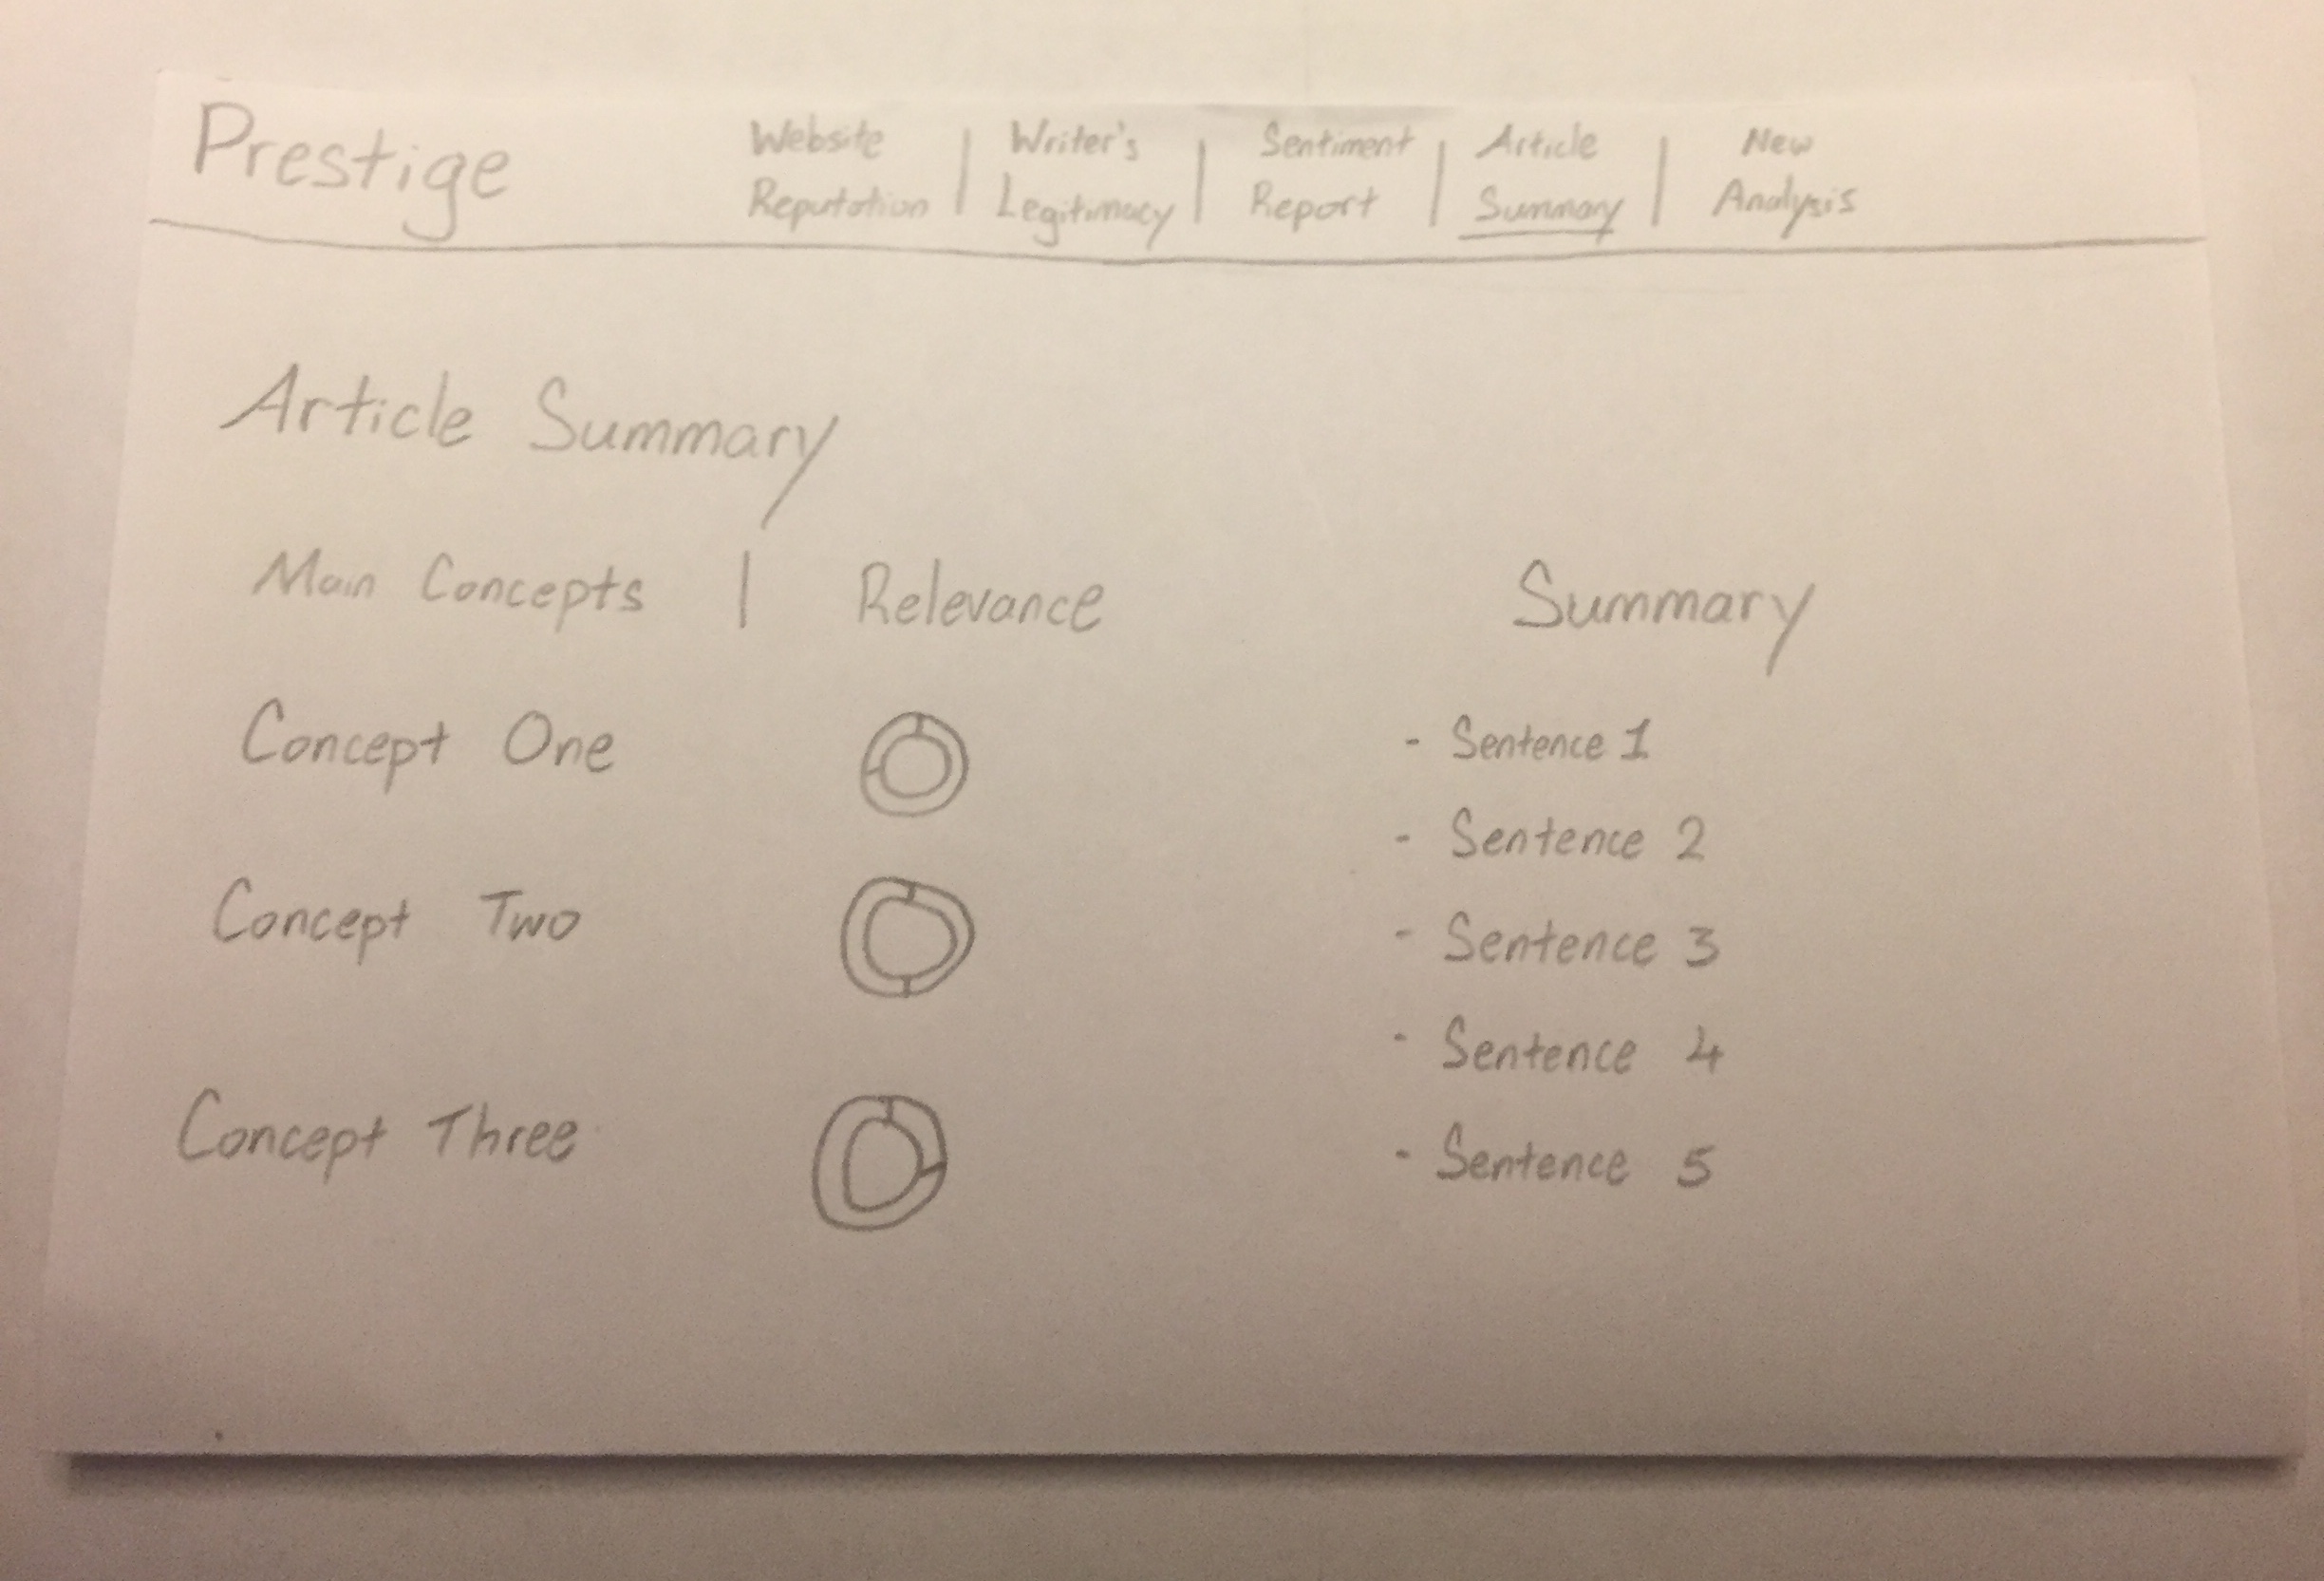 Prestige
Website Reputation | Writer's Legitimacy | Sentiment Report | Article Summary | New Analysis
Article Summary
Main Concepts | Relevance
Concept One
Concept Two
Concept Three
Summary
- Sentence 1
- Sentence 2
- Sentence 3
- Sentence 4
- Sentence 5